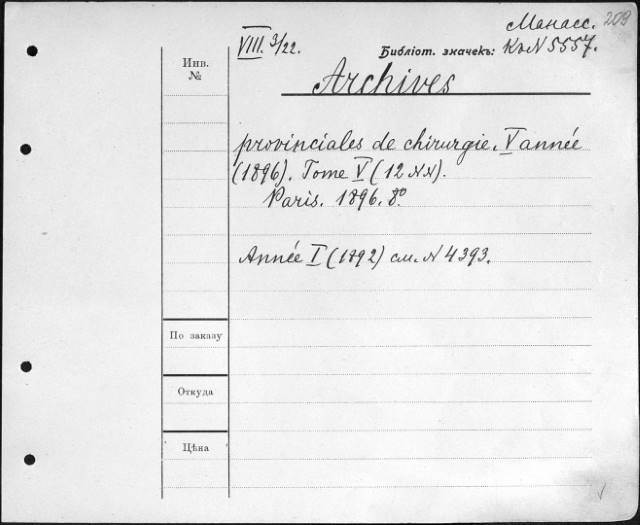 209
Манасс.
VIII. 3/22.
Библіот. значекъ: Къ N 5557.
Инв.
№
Archives
provinciales de chirurgie. V année
(1896). Tome V (12 NN).
Paris. 1896. 8°.
Année I (1892) см. N 4393.
По заказу
Откуда
Цѣна